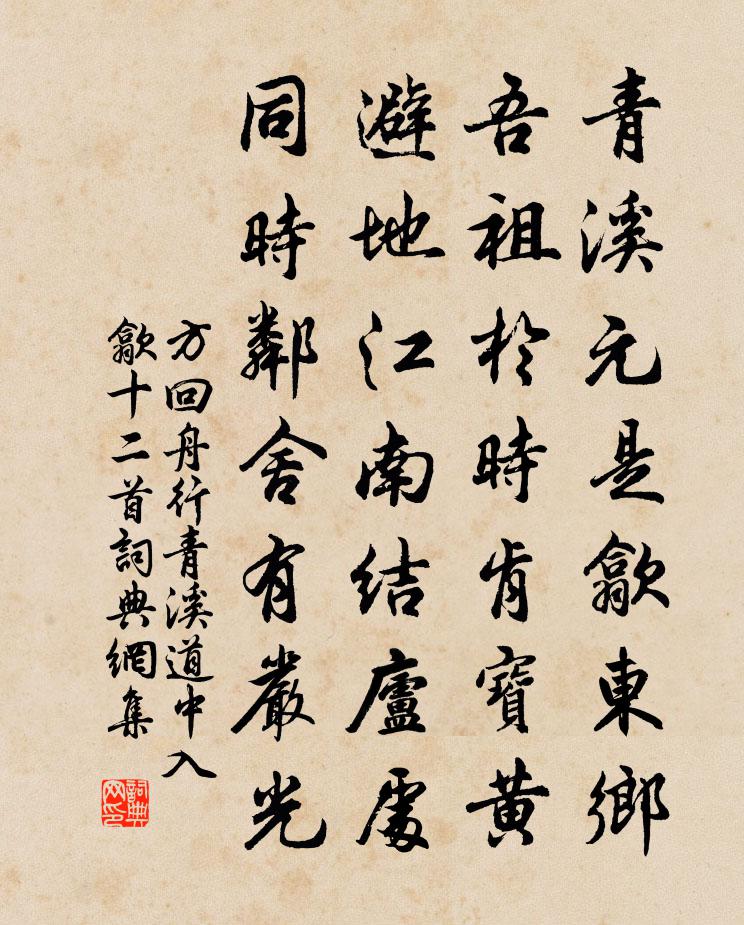 青溪元是歙東鄉
吾祖於時肯寶黃
避地江南結廬處
同時鄰舍有嚴光
方回舟行青溪道中入
歙十二首詞典網集
詞典
网印